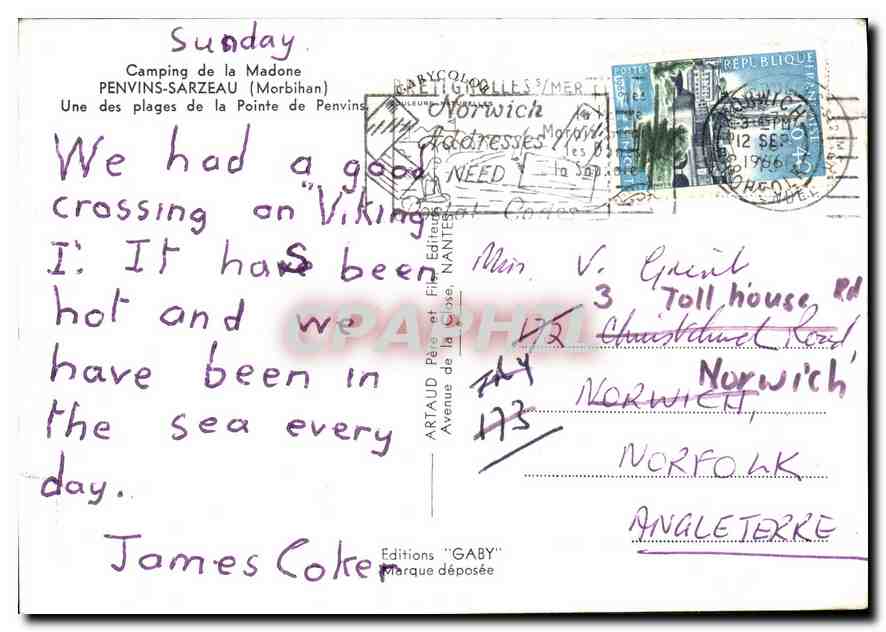 Sunday.
Camping de la Madone
PENVINS-SARZEAU (Morbihan)
Une des plages de la Pointe de Penvins.
We had a good
crossing on "Viking
I". It has been
hot and we
have been in
the sea every
day.
James Coker
Editions "GABY"
Marque déposée
ARTAUD Père et Fils Editeurs
Avenue de la Close, NANTES
GABYCOLOR
COULEURS NATURELLES
BRETIGNOLLES S/MER
Norwich
Addresses
NEED
Postal Codes
la Sapinière
POSTES
REPUBLIQUE FRANCAISE
0,40
NORWICH
3-PM
12 SEP
1966
NORFOLK
Miss. V.
3 Tollhouse Rd
172 Christchurch Road,
Norwich
NORWICH,
173
NORFOLK
ANGLETERRE
CPAPHIL